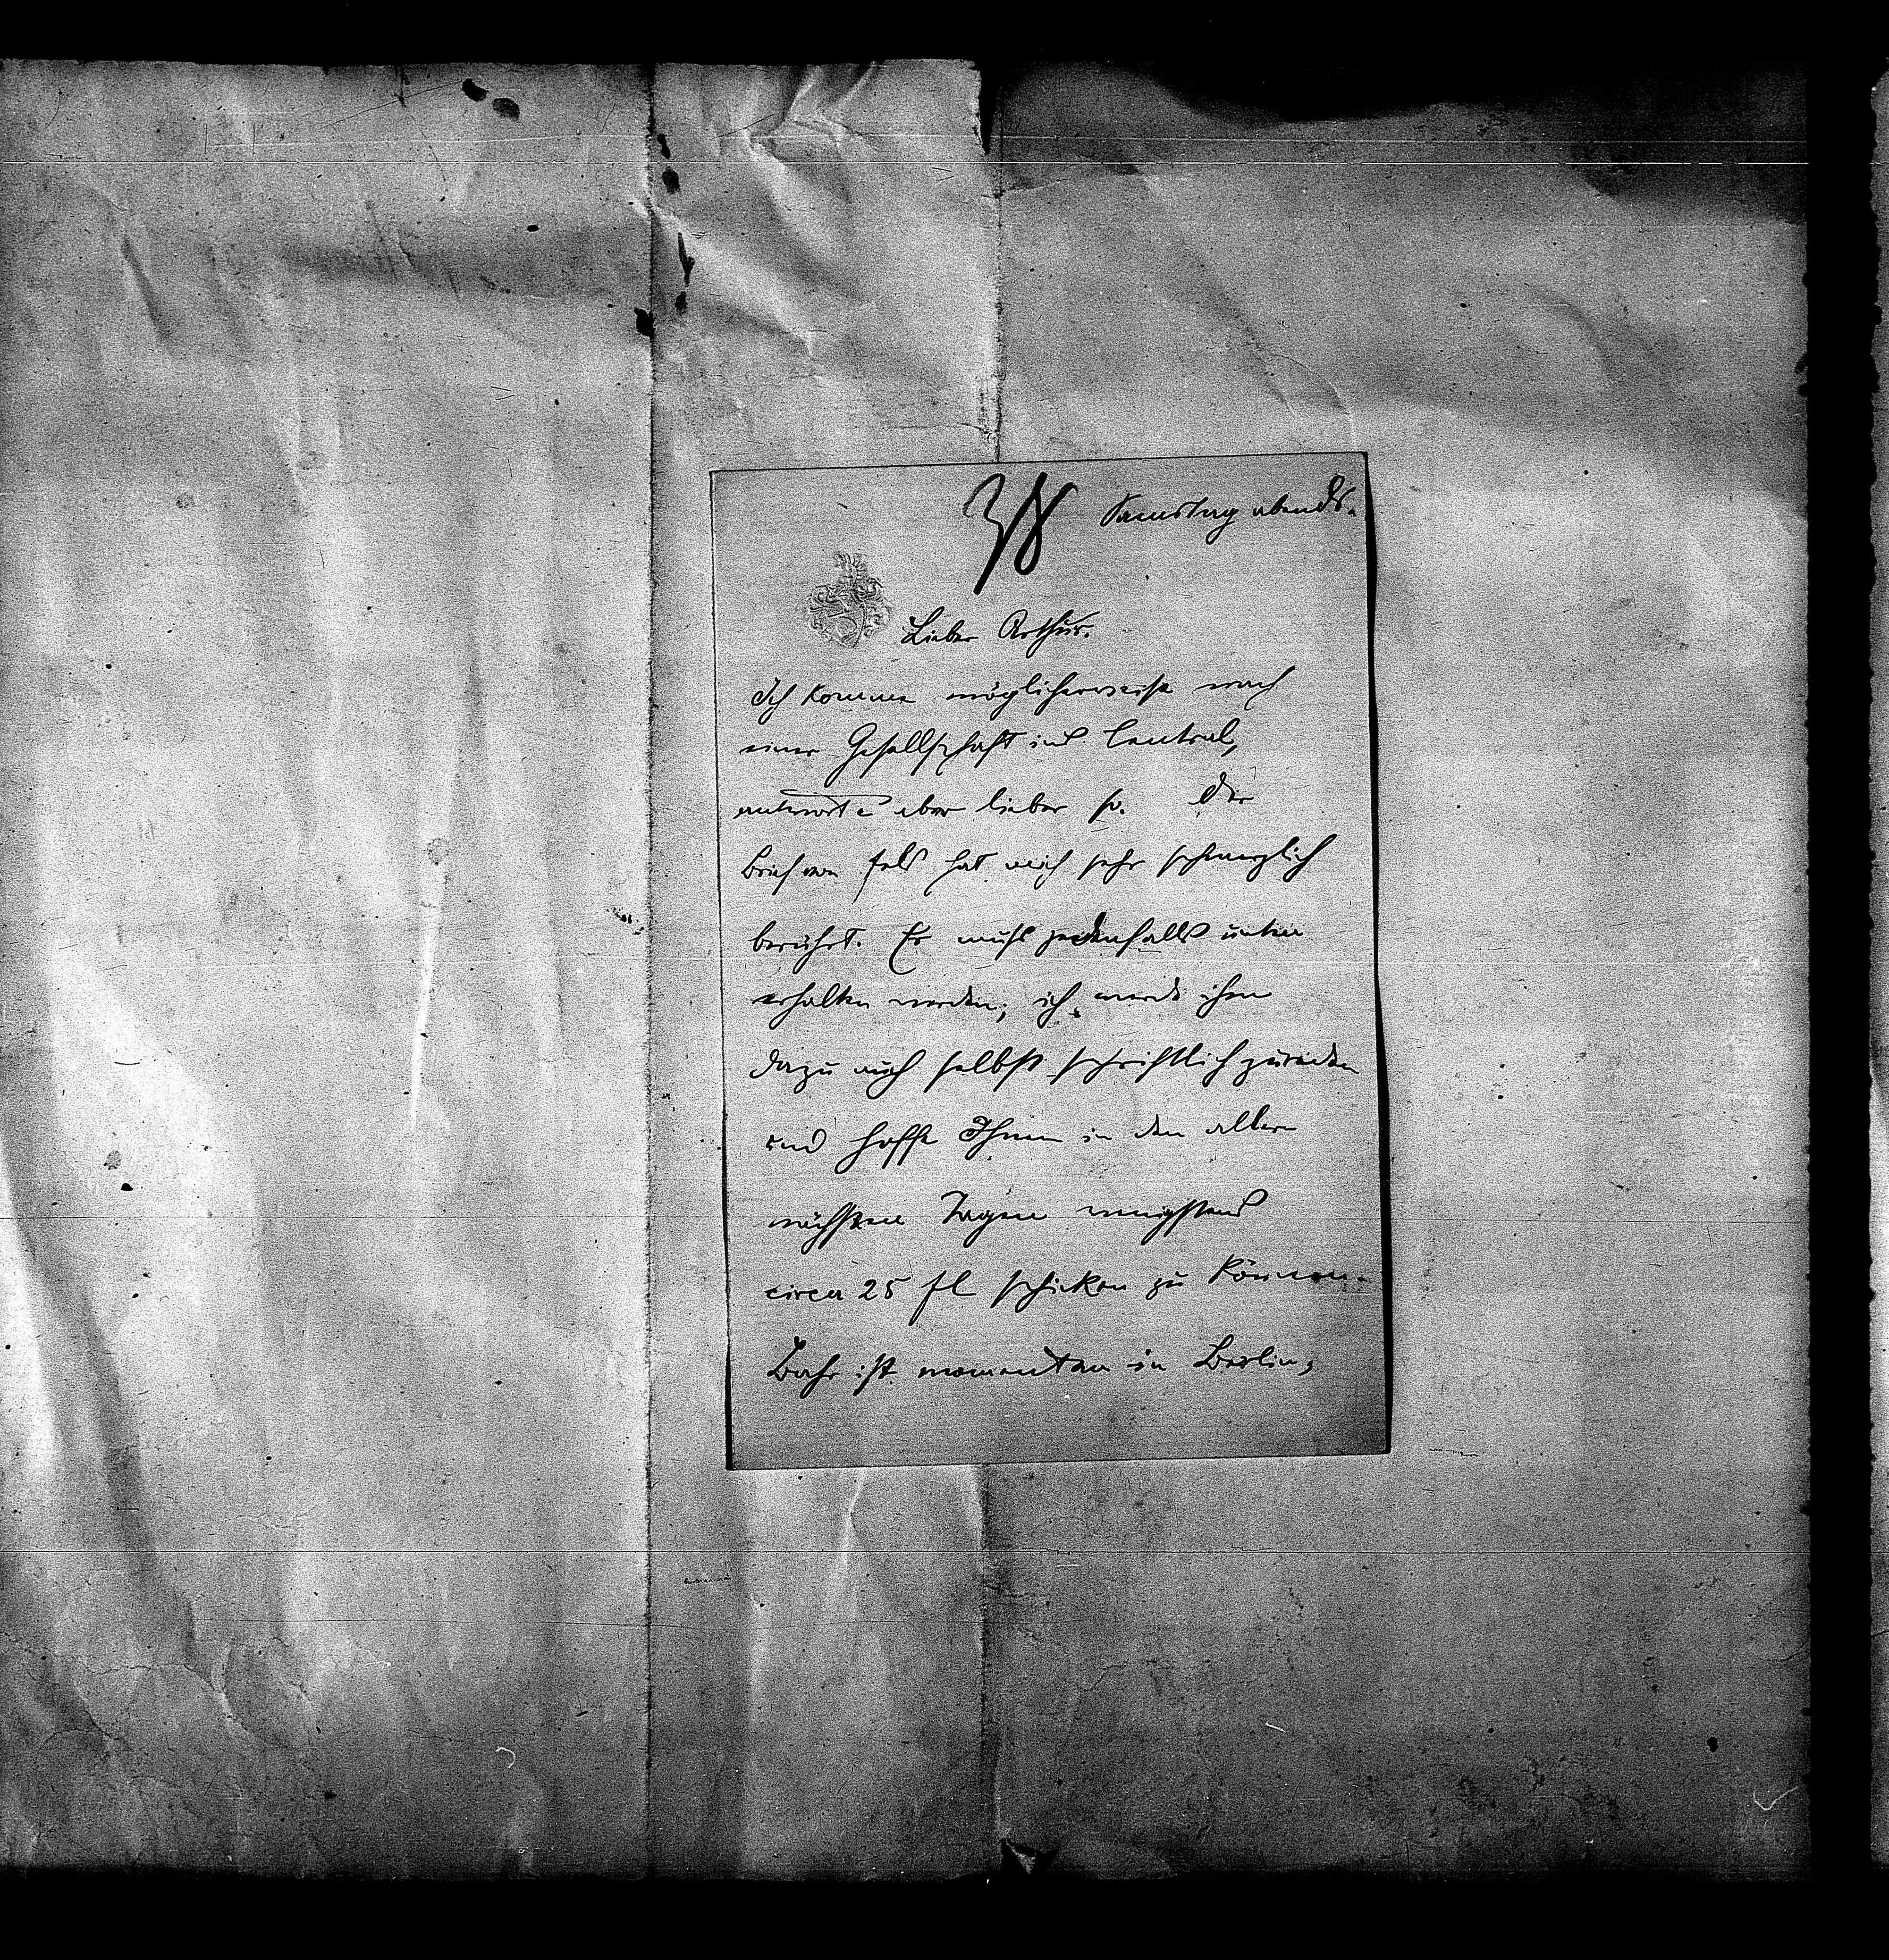 38 Samstag abends.
Lieber Arthur.
Ich komme möglicherweise nach
einer Gesellschaft ins Central,
antworte aber lieber so. Der
Brief von Fels hat mich sehr schmerzlich
berührt. Er muß jedenfalls unten
erhalten werden; ich werde ihm
dazu auch selbst schriftlich zureden
und hoffe Ihnen in den aller
nächsten Tagen wenigstens
circa 25 fl schicken zu können.
Bahr ist momentan in Berlin,